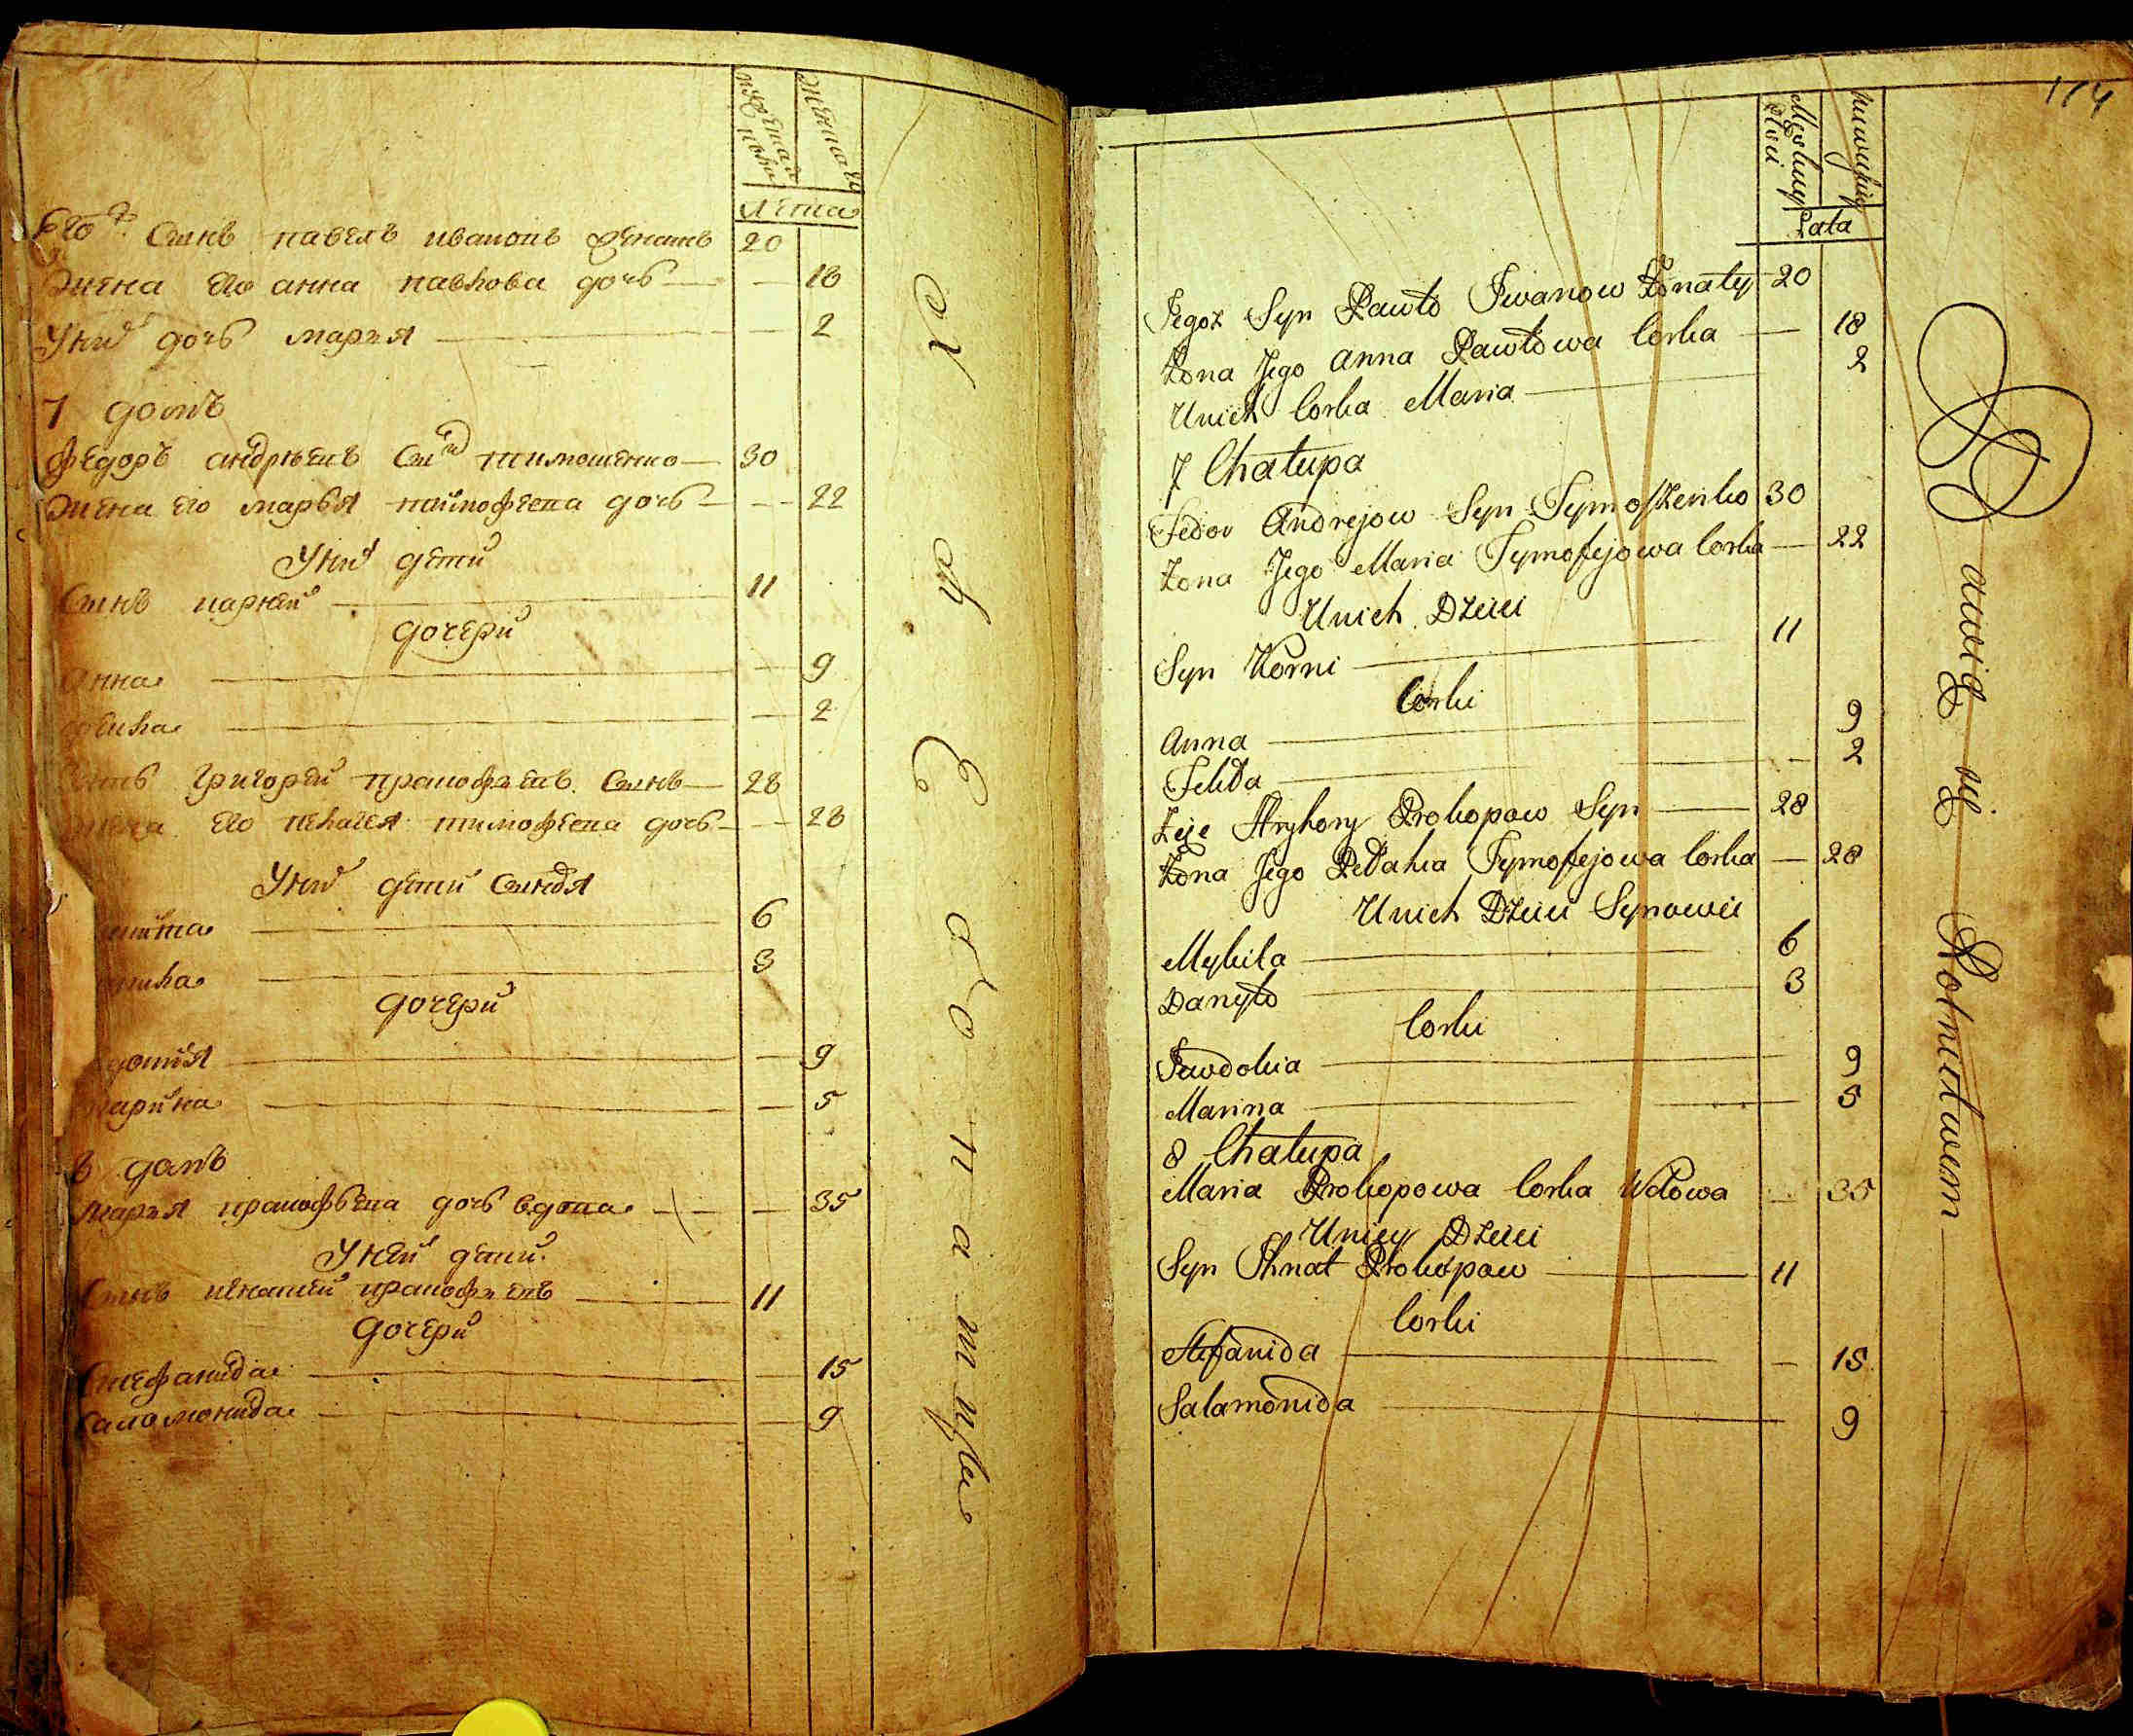 мужеска пола
женска
лета
Его ж Сынъ павелъ ивановъ женатъ 20
Жена его анна павлова дочь — — 18
У них дочь мария — — 2
7 домъ
федоръ андрѣевъ сын тимошенко — 30
Жена его марья тимофеева дочь — — 22
У них дети
Сынъ корней — 11
дочери
Анна — — 9
— — 2
григорей прокофиевъ Сынъ — 28
Жена его пелагея тимофеева дочь — — 28
У них дети Сыновя
— 6
— 3
дочери
— — 9
марина — — 5
8 домъ
Мария прокофьева дочь вдова — — 35
У ней дети
Сынъ игнатей прокофиевъ — 11
дочери
Стефанида — — 15
Саломонида — — 9
174
Męskiey Płci
Niewieściey
Lata
Jegoż Syn Pawło Jwanow Żonaty 20
Żona Jego Anna Pawłowa Corka — 18
Unich Corka Maria — 2
7 Chałupa
Fedor Andrejow Syn Tymoszenko 30
Żona Jego Maria Tymofejowa Corka — 22
Unich Dzieci
Syn Korni — 11
Corki
Anna — 9
— — 2
Hryhory Prokopow Syn — 28
Żona Jego Pełahia Tymofejowa Corka — 28
Unich Dzieci Synowie
Mykita — 6
Danyło — 3
Corki
Jawdokia — 9
Marina — — 5
8 Chałupa
Maria Prokopowa Corka Wdowa — 35
Uniey Dzieci
Syn Jhnat Prokopow — 11
Corki
Stefanida — — 15
Salamonida — 9
Bawią się Rolnictwem